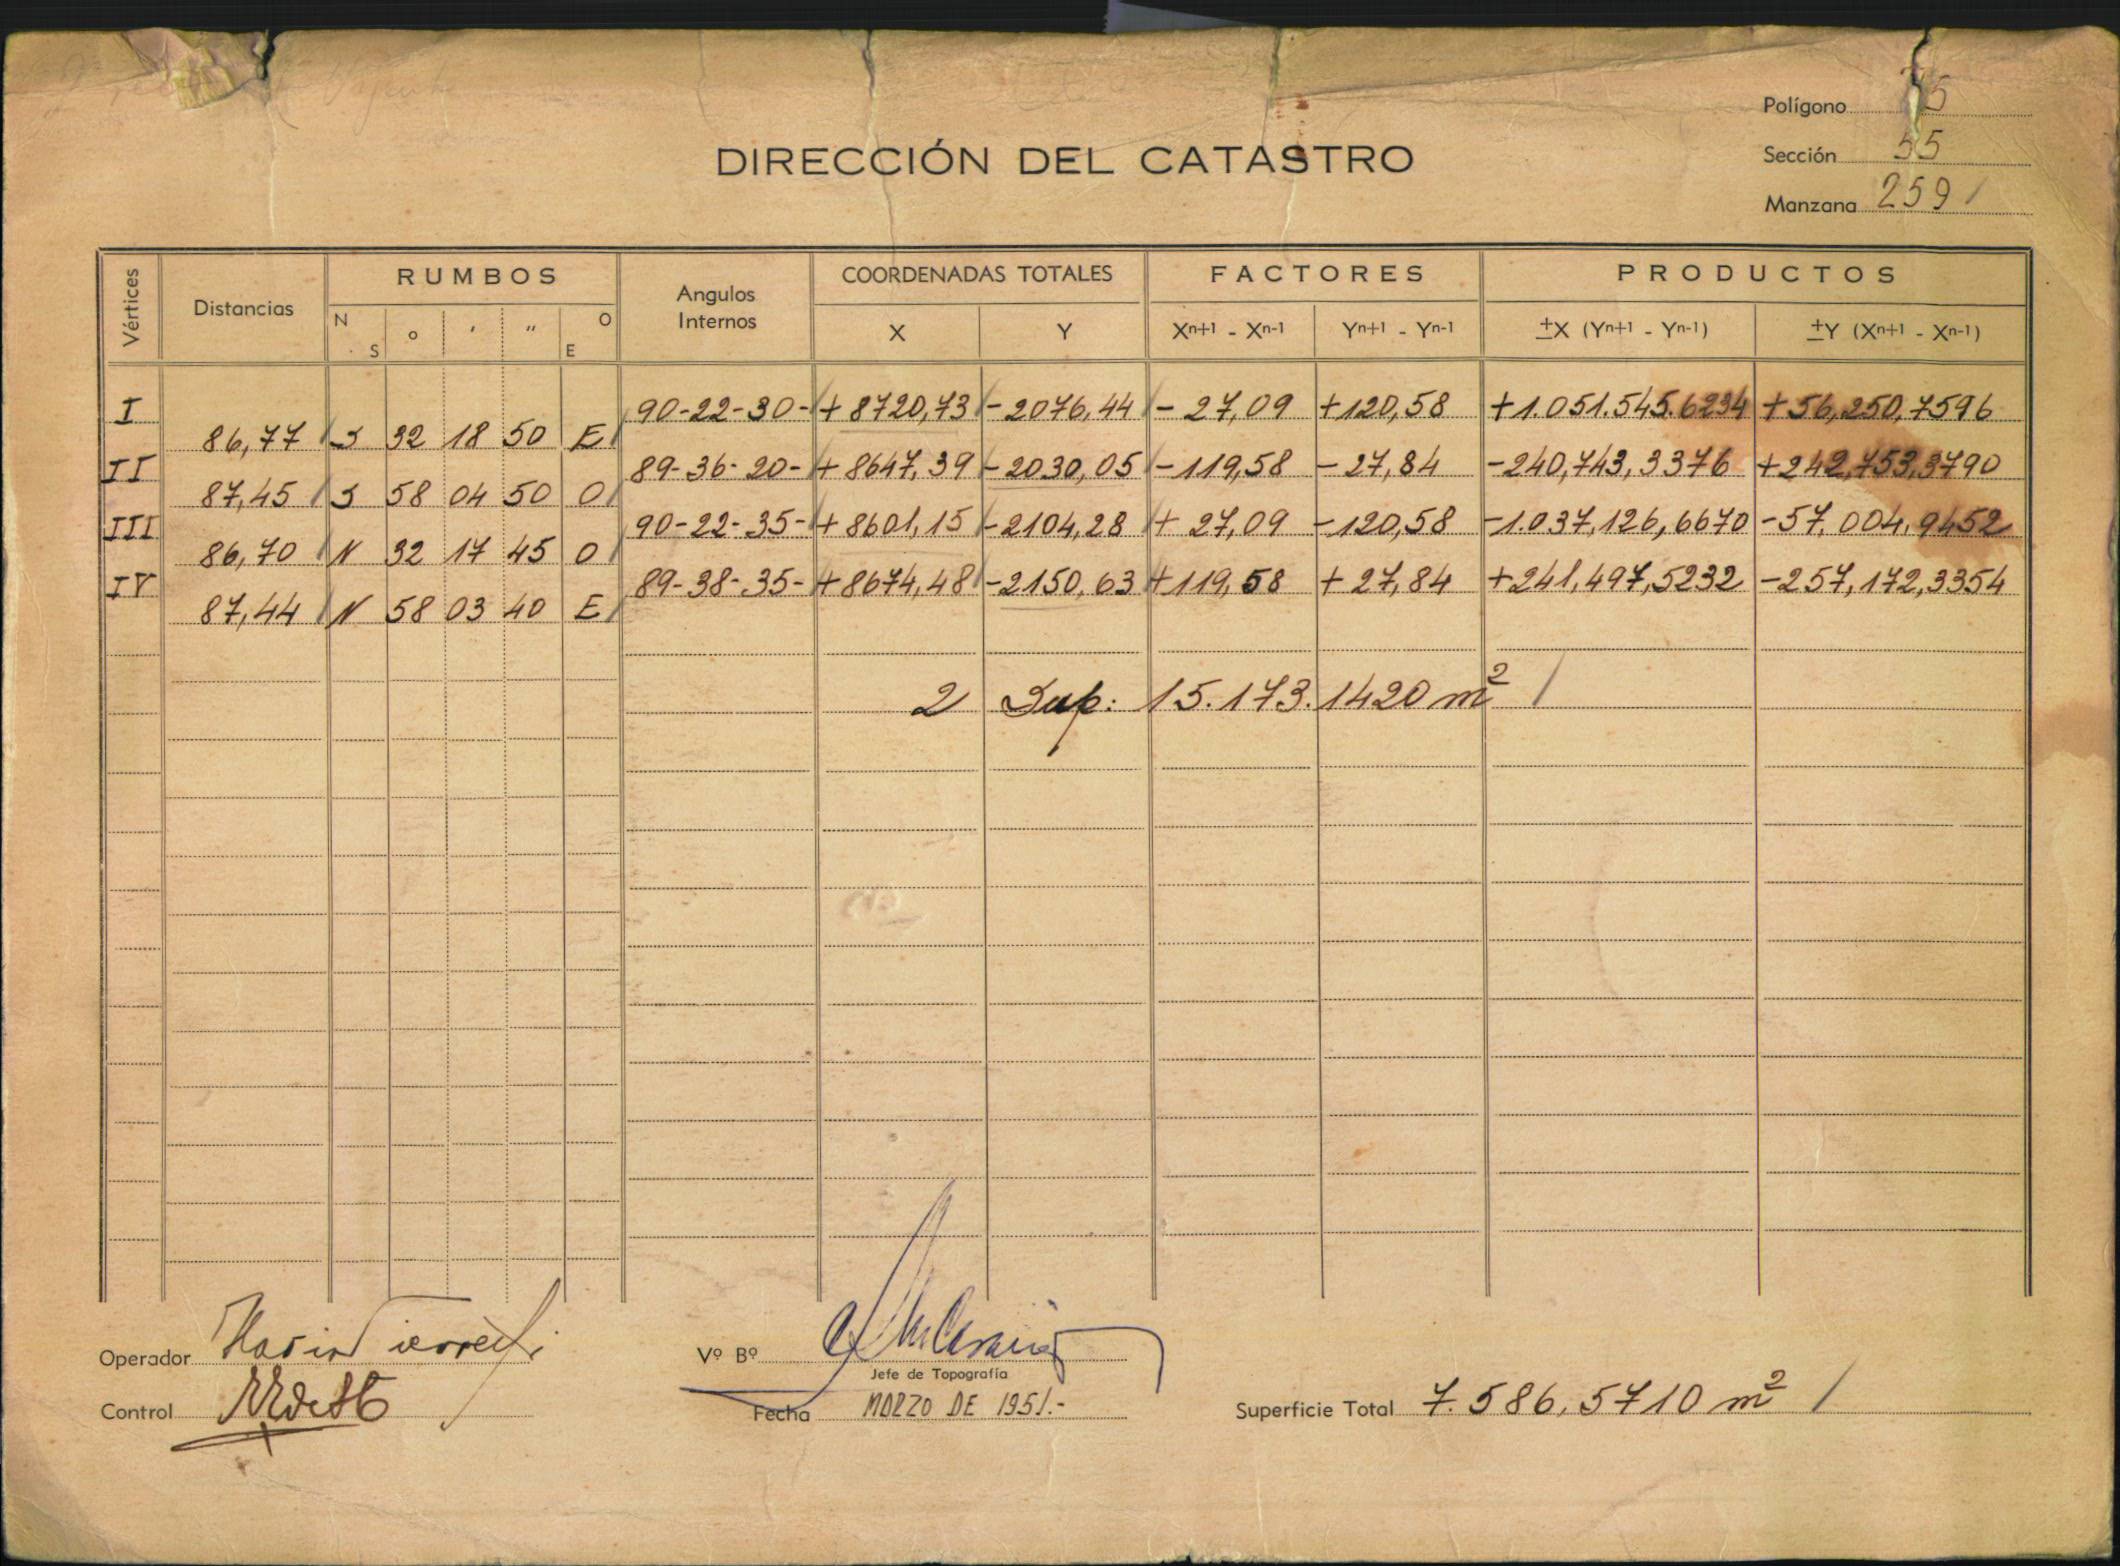 Polígono
Sección 55
Manzana 259
DIRECCIÓN DEL CATASTRO
Vértices Distancias RUMBOS Angulos Internos COORDENADAS TOTALES FACTORES PRODUCTOS
N S o ' " O E X Y Xn+1 - Xn-1 Yn+1 - Yn-1 ±X (Yn+1 - Yn-1) ±Y (Xn+1 - Xn-1)
I 90-22-30- +8720,73 -2076,44 -27,09 +120,58 +1.051.545.6234 +56,250,7596
86,77 S 32 18 50 E
II 89-36-20- +8647,39 -2030,05 -119,58 -27,84 -240,743,3376 +242,753,3790
87,45 S 58 04 50 O
III 90-22-35- +8601,15 -2104,28 +27,09 -120,58 -1.037,126,6670 -57,004,9452
86,70 N 32 17 45 O
IV 89-38-35- +8674,48 -2150,63 +119,58 +27,84 +241,497,5232 -257,172,3354
87,44 N 58 03 40 E
2 Sup: 15.173.1420 m²
Operador
Control
Vº Bº
Jefe de Topografía
Fecha MARZO DE 1951.-
Superficie Total 7.586,5710 m²